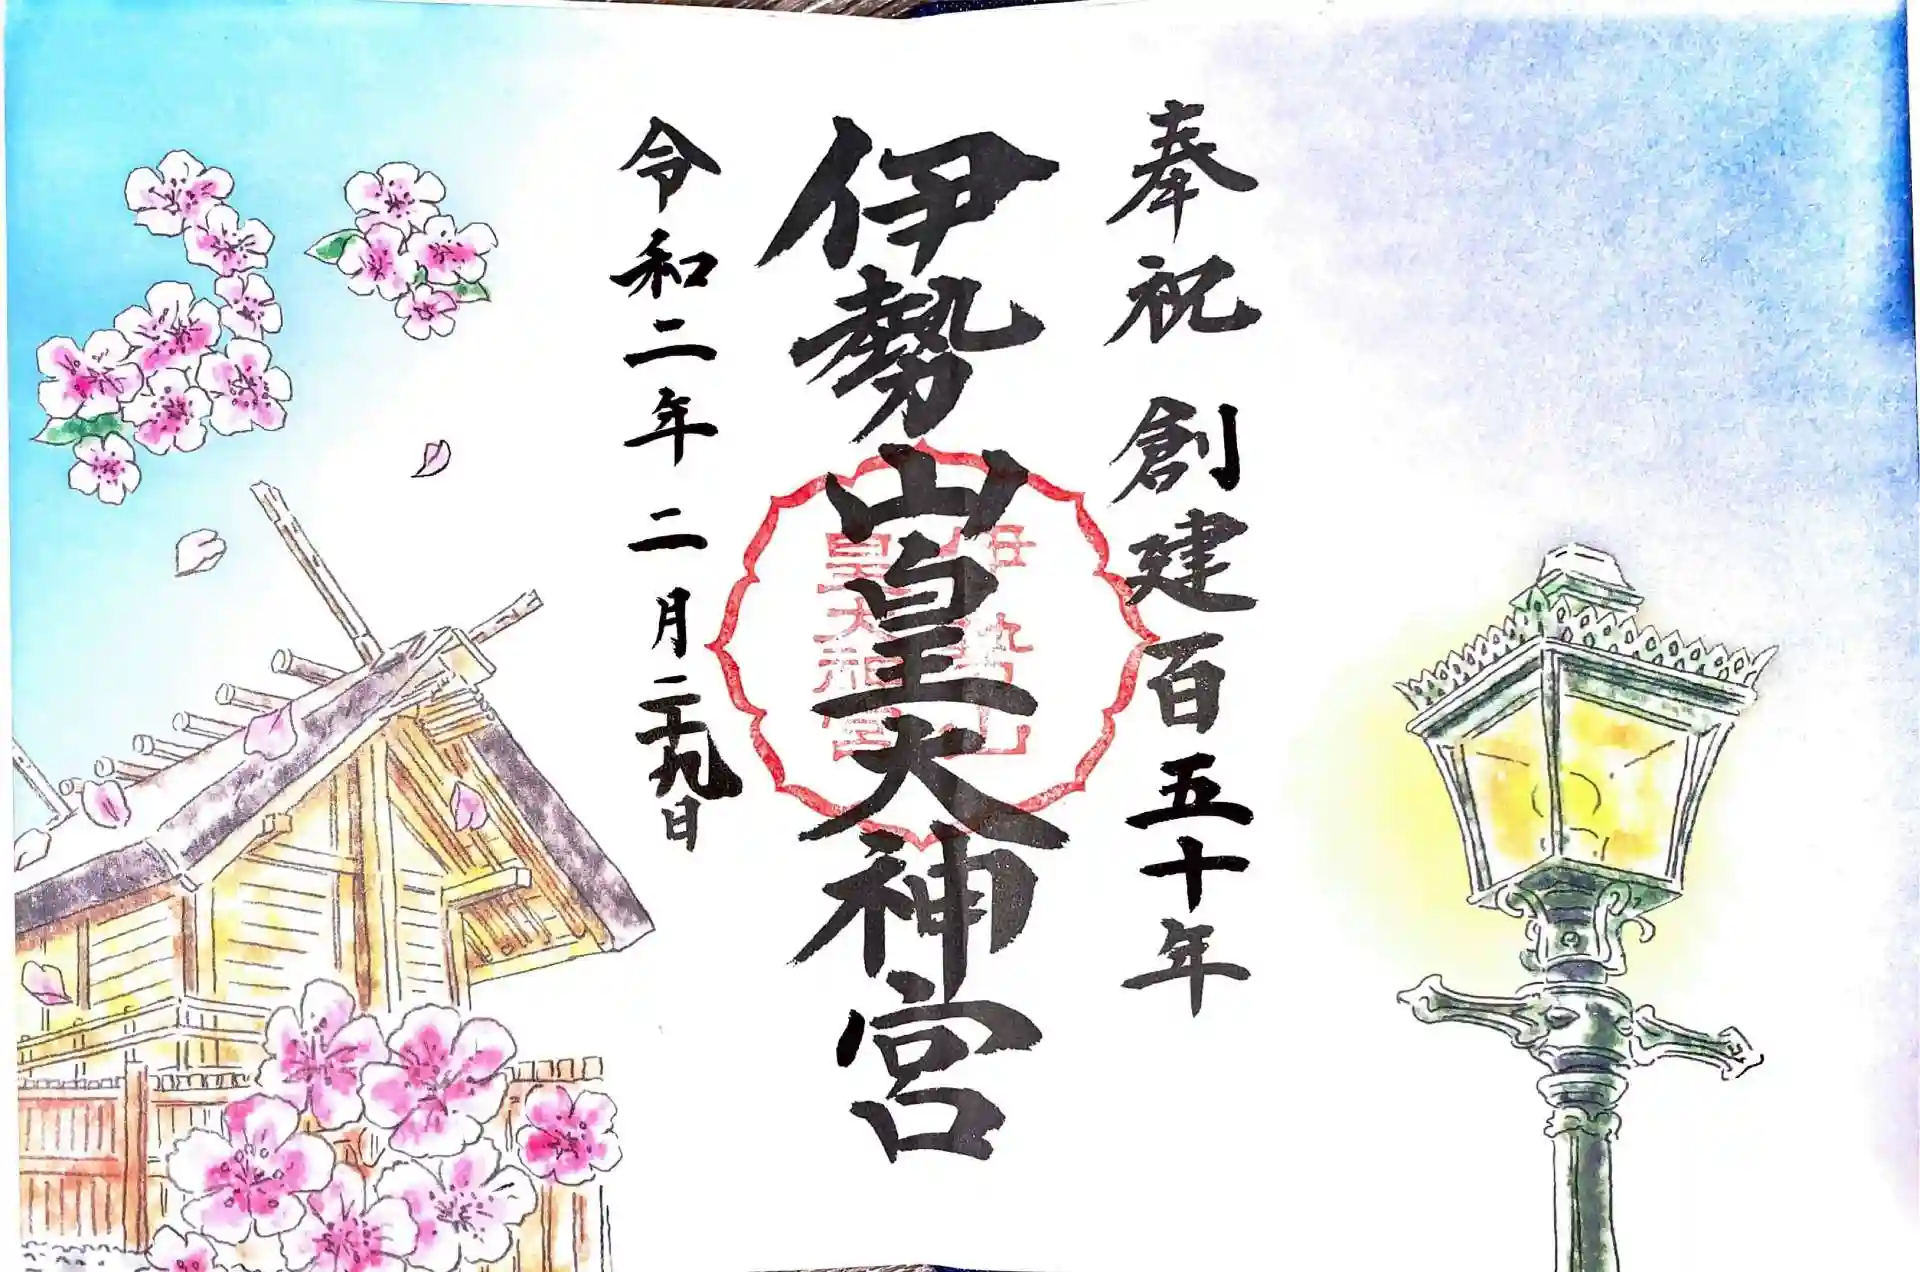 奉祝 創建百五十年
伊勢山皇大神宮
伊勢山
皇大神宮
令和二年二月二十九日